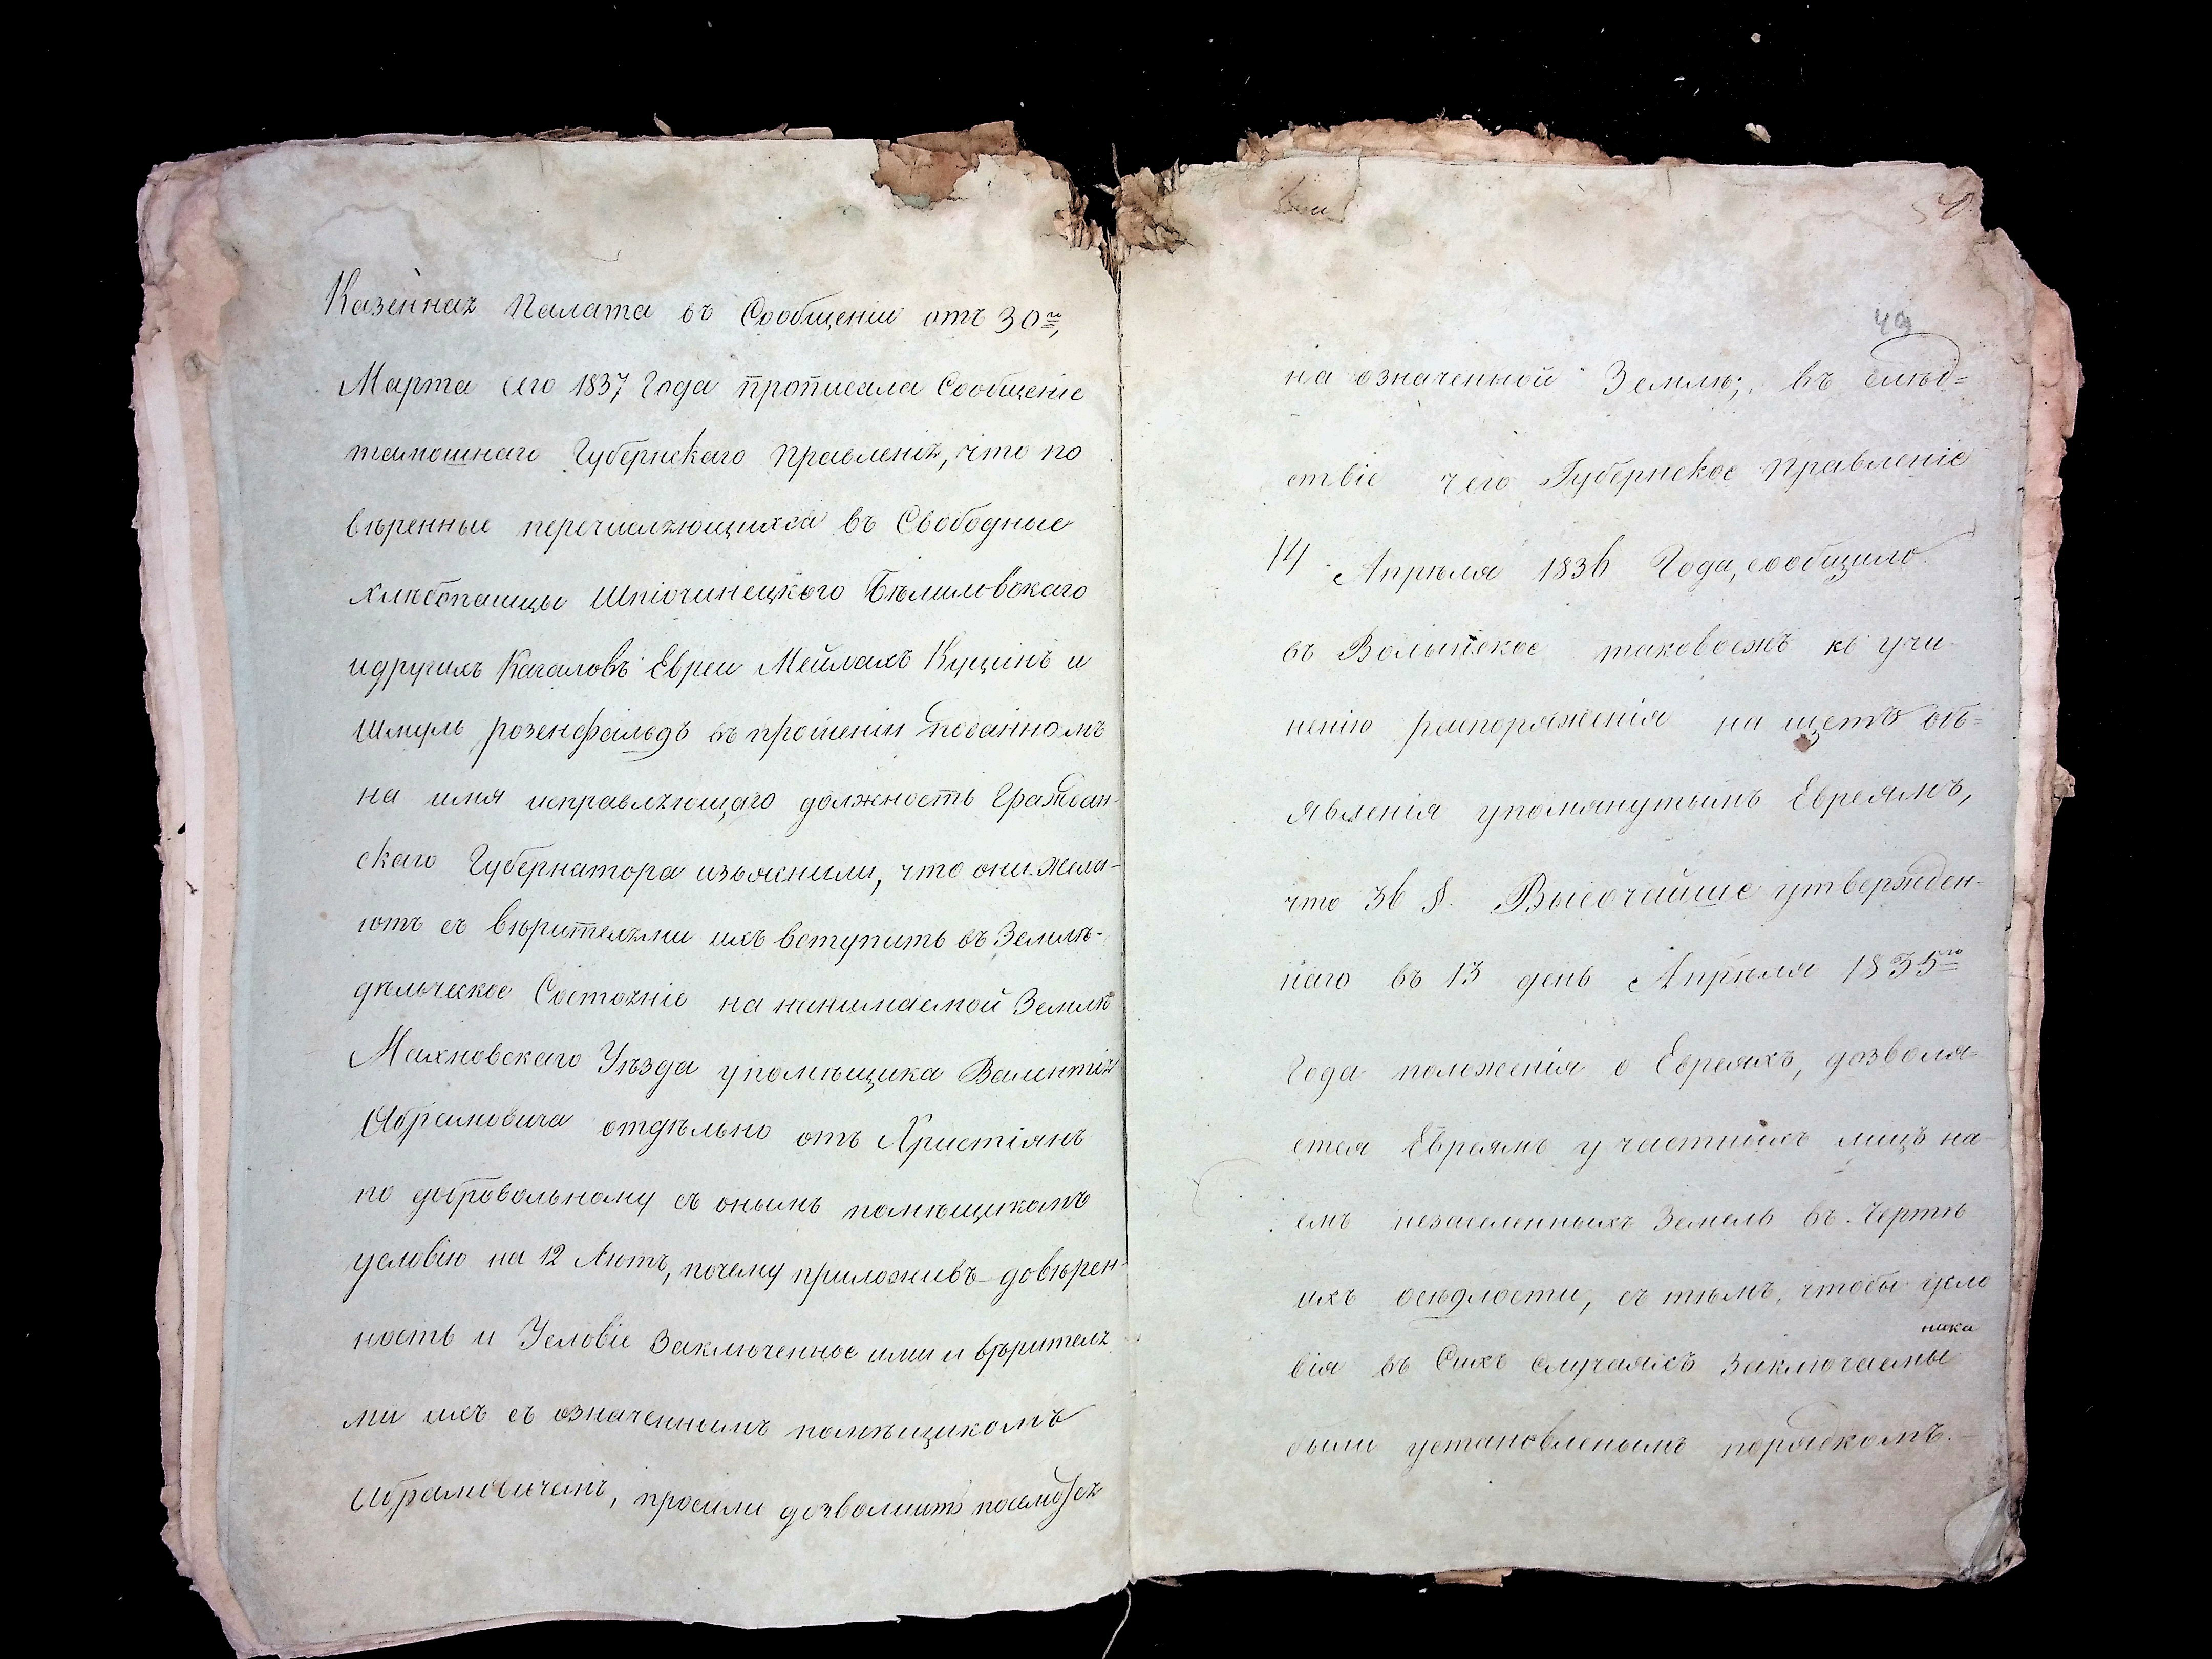 Казенная Палата въ Сообщеніи отъ 30го,
Марта сего 1837 Года прописала Сообщеніе
тамошнаго Губернскаго Правленія, что по
вѣренные перечисляющихся въ Свободные
хлѣбопашцы Шпіочинецкого Бѣлиловскаго
и другихъ Кагаловъ Евреи Меймахъ Куцинъ и
Шмуль розенфальдъ въ прошеніи поданномъ
на имя исправляющаго должность Граждан-
скаго Губернатора изъяснили, что они жела-
ютъ съ вѣрителями ихъ вступить въ Земле-
дѣльческое Состояніе на нанимаемой Землѣ
Махновскаго Уѣзда у помѣщика Валентія
Абрамовича отдѣльно отъ Христіянъ
по добровольному съ онымъ помѣщикомъ
условію на 12 Лѣтъ, почему приложивъ довѣрен-
ность и Условіе Заключенное ими и вѣрителя
ми ихъ съ означеннымъ помѣщикомъ
Абрамовичемъ, просили дозволить
50
49
на означенной Землѣ; въ слѣд=
ствіе чего Губернское Правленіе
14 Апрѣля 1836 Года, сообщило
въ Волынское таковоежъ къ учи-
ненію распоряженія на щетъ объ=
явленія упомянутымъ Евреямъ,
что 36 §. Высочайше утвержден=
наго въ 13 день Апрѣля 1835го
Года положенія о Евреяхъ, дозволя=
ется Евреямъ у частныхъ лицъ на-
емъ незаселенныхъ Земель въ Чертѣ
ихъ осѣдлости, съ тѣмъ, чтобы усло
вія въ Сихъ случаяхъ заключаемы
были установленымъ порядкомъ.